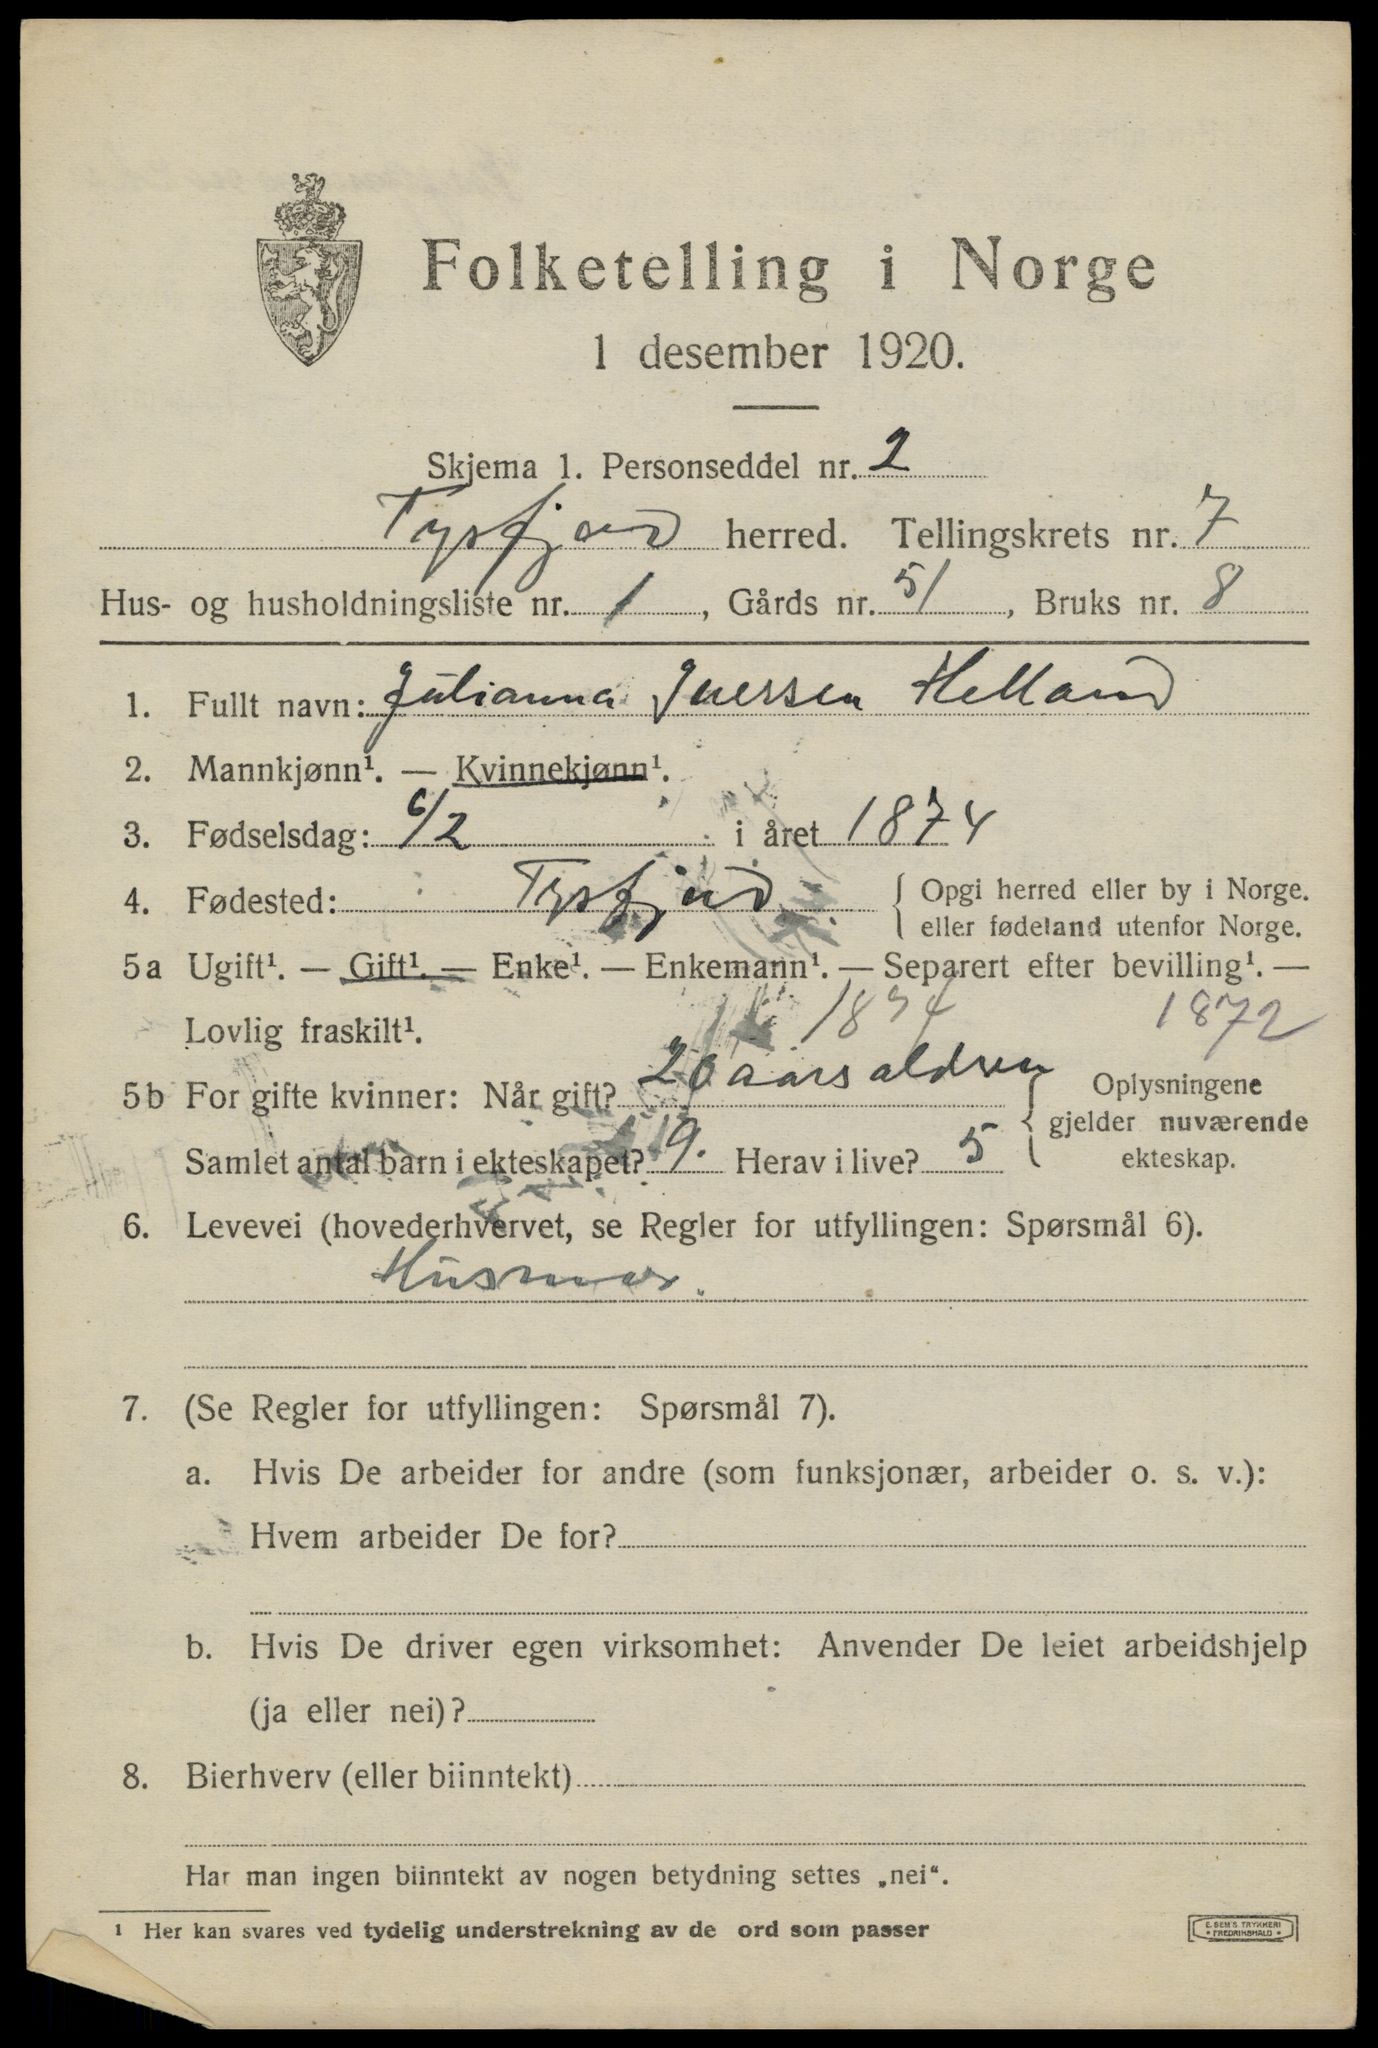 Folketelling i Norge
1 desember 1920.
Skjema 1. Personseddel nr. 2
Tysfjord herred. Tellingskrets nr. 7
Hus- og husholdningsliste nr. 1, Gårds nr. 51, Bruks nr. 8
1. Fullt navn: Julianna Iversen Helland
2. Mannkjønn¹. — Kvinnekjønn¹.
3. Fødselsdag: 6/2 i året 1874
4. Fødested: Tysfjord { Opgi herred eller by i Norge.
eller fødeland utenfor Norge.
5a Ugift¹. — Gift¹. — Enke¹. — Enkemann¹. — Separert efter bevilling¹. —
Lovlig fraskilt¹. 1894 1872
5b For gifte kvinner: Når gift? 20 aars aldren
Samlet antal barn i ekteskapet? 9. Herav i live? 5
{ Oplysningene
gjelder nuværende
ekteskap.
6. Levevei (hovederhvervet, se Regler for utfyllingen: Spørsmål 6).
Husmor.
7. (Se Regler for utfyllingen: Spørsmål 7).
a. Hvis De arbeider for andre (som funksjonær, arbeider o. s. v.):
Hvem arbeider De for?
b. Hvis De driver egen virksomhet: Anvender De leiet arbeidshjelp
(ja eller nei)?
8. Bierhverv (eller biinntekt)
Har man ingen biinntekt av nogen betydning settes „nei“.
¹ Her kan svares ved tydelig understrekning av de ord som passer
E. SEM'S TRYKKERI
• FREDRIKSHALD •